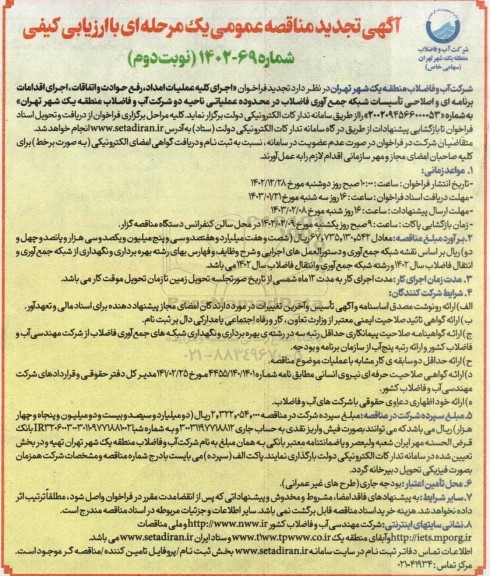 آگهی تجدید مناقصه عمومی یک مرحله ای با ارزیابی کیفی
شماره ۶۹-۱۴۰۲ (نوبت دوم)
شرکت آب و فاضلاب
منطقه یک شهر تهران
(سهامی خاص)
شرکت آب و فاضلاب منطقه یک شهر تهران در نظر دارد تجدید فراخوان «اجرای کلیه عملیات امداد، رفع حوادث و اتفاقات، اجرای اقدامات
برنامه ای و اصلاحی تأسیسات شبکه جمع آوری فاضلاب در محدوده عملیاتی ناحیه دو شرکت آب و فاضلاب منطقه یک شهر تهران»
به شماره «۲۰۰۲۰۹۴۵۶۶۰۰۰۰۵۳» را از طریق سامانه تدارکات الکترونیکی دولت برگزار نماید. کلیه مراحل برگزاری فراخوان از دریافت و تحویل اسناد
فراخوان تا بازگشایی پیشنهادات از طریق درگاه سامانه تدارکات الکترونیکی دولت (ستاد) به آدرس www.setadiran.ir انجام خواهد شد.
متقاضیان شرکت در فراخوان در صورت عدم عضویت در سامانه، نسبت به ثبت نام و دریافت گواهی امضای الکترونیکی (به صورت برخط) برای
کلیه صاحبان امضای مجاز و مهر سازمانی اقدام لازم را به عمل آورند.
۱. مواعد زمانی:
-تاریخ انتشار فراخوان: ساعت: ۱۰:۰۰ صبح روز دوشنبه مورخ ۱۴۰۲/۱۲/۲۸
-مهلت دریافت اسناد فراخوان: ساعت: ۱۶ روز سه شنبه مورخ ۱۴۰۳/۰۱/۲۱
-مهلت ارسال پیشنهادات: ساعت: ۱۶ روز شنبه مورخ ۱۴۰۳/۰۲/۰۸
- زمان بازگشایی پاکات: ساعت: ۹ صبح روز یکشنبه مورخ ۱۴۰۳/۰۲/۰۹ در محل سالن کنفرانس دستگاه مناقصه گزار.
۲. برآورد مبلغ مناقصه: معادل ۶۷٫۷۳۵٫۱۳۰٫۵۴۲ ریال (شصت و هفت میلیارد و هفتصد و سی و پنج میلیون و یکصد و سی هزار و پانصد و چهل و
دو) ریال بر اساس نقشه شبکه جمع آوری و دستورالعمل های اجرایی و شرح وظایف و فهارس بهای رشته بهره برداری و نگهداری از شبکه جمع آوری و
انتقال فاضلاب سال ۱۴۰۲ و رشته شبکه جمع آوری و انتقال فاضلاب سال ۱۴۰۲ می باشد.
۳. مدت زمان اجرای کار: مدت اجرای کار به مدت ۱۲ ماه شمسی از تاریخ صورتجلسه تحویل زمین تا زمان تحویل موقت کار می باشد.
۴. شرایط شرکت کنندگان:
الف) ارائه رونوشت مصدق اساسنامه و آگهی تأسیس و آخرین تغییرات در مورد دارندگان امضای مجاز پیشنهاد دهنده برای اسناد مالی و تعهدآور.
ب) ارائه گواهی تأیید صلاحیت ایمنی معتبر از وزارت تعاون، کار و رفاه اجتماعی یا مدارکی دال بر ثبت نام.
ج) ارائه گواهینامه صلاحیت پیمانکاری حداقل رتبه سه در رشته ی بهره برداری و نگهداری شبکه های جمع آوری فاضلاب از شرکت مهندسی آب و
فاضلاب کشور و ارائه رتبه پنج آب از سازمان برنامه و بودجه.
ح) ارائه حداقل دو سابقه ی کار مشابه با عملیات موضوع مناقصه.
د) ارائه گواهی صلاحیت حرفه ای نیروی انسانی مطابق نامه شماره ۴۴۵۵/۱۴۰/۱۴۰۱ مورخ ۱۴۰۱/۰۲/۲۵ مدیر کل دفتر حقوقی و قراردادهای شرکت
مهندسی آب و فاضلاب کشور.
ه) ارائه خوداظهاری دعاوی حقوقی با شرکت های آب و فاضلاب.
۵. مبلغ سپرده شرکت در مناقصه: مبلغ سپرده شرکت در مناقصه ۲٫۳۲۲٫۰۵۴٫۰۰۰ ریال (دو میلیارد و سیصد و بیست و دو میلیون و پنجاه و چهار
هزار) ریال می باشد که می توانند بصورت فیش واریز نقدی به حساب جاری و به شماره شبا بانک
قرض الحسنه مهر ایران شعبه ولیعصر و یا ضمانتنامه معتبر بانکی به همان مبلغ به نام شرکت آب و فاضلاب منطقه یک شهر تهران تهیه و در بخش
تعیین شده در سامانه تدارکات الکترونیکی دولت بارگذاری نمایند. پاکت الف (سپرده) می بایست با درج شماره مناقصه و مشخصات شرکت همزمان
بصورت فیزیکی تحویل دبیرخانه گردد.
۶. محل تأمین اعتبار: بودجه جاری (طرح های غیر عمرانی).
۷. سایر شرایط: به پیشنهادهای فاقد امضاء، مشروط و مخدوش و پیشنهاداتی که پس از انقضا مدت مقرر در فراخوان واصل شود، مطلقاً ترتیب اثر
داده نخواهد شد. هزینه خرید اسناد مناقصه قابل برگشت نمی باشد. سایر اطلاعات و جزئیات مربوطه در اسناد مناقصه مندرج است.
۸. نشانی سایتهای اینترنتی: شرکت مهندسی آب و فاضلاب کشور http://www.nww.ir و ملی مناقصات
http://iets.mporg.ir و آبفای منطقه یک www.t1ww.tpww.co.ir و ستاد ایران www.setadiran.ir می باشد.
اطلاعات تماس دفاتر ثبت نام در سایت سامانه www.setadiran.ir بخش ثبت نام/پروفایل تامین کننده/مناقصه گر موجود است.
مرکز تماس: ۴۱۹۳۴-۰۲۱